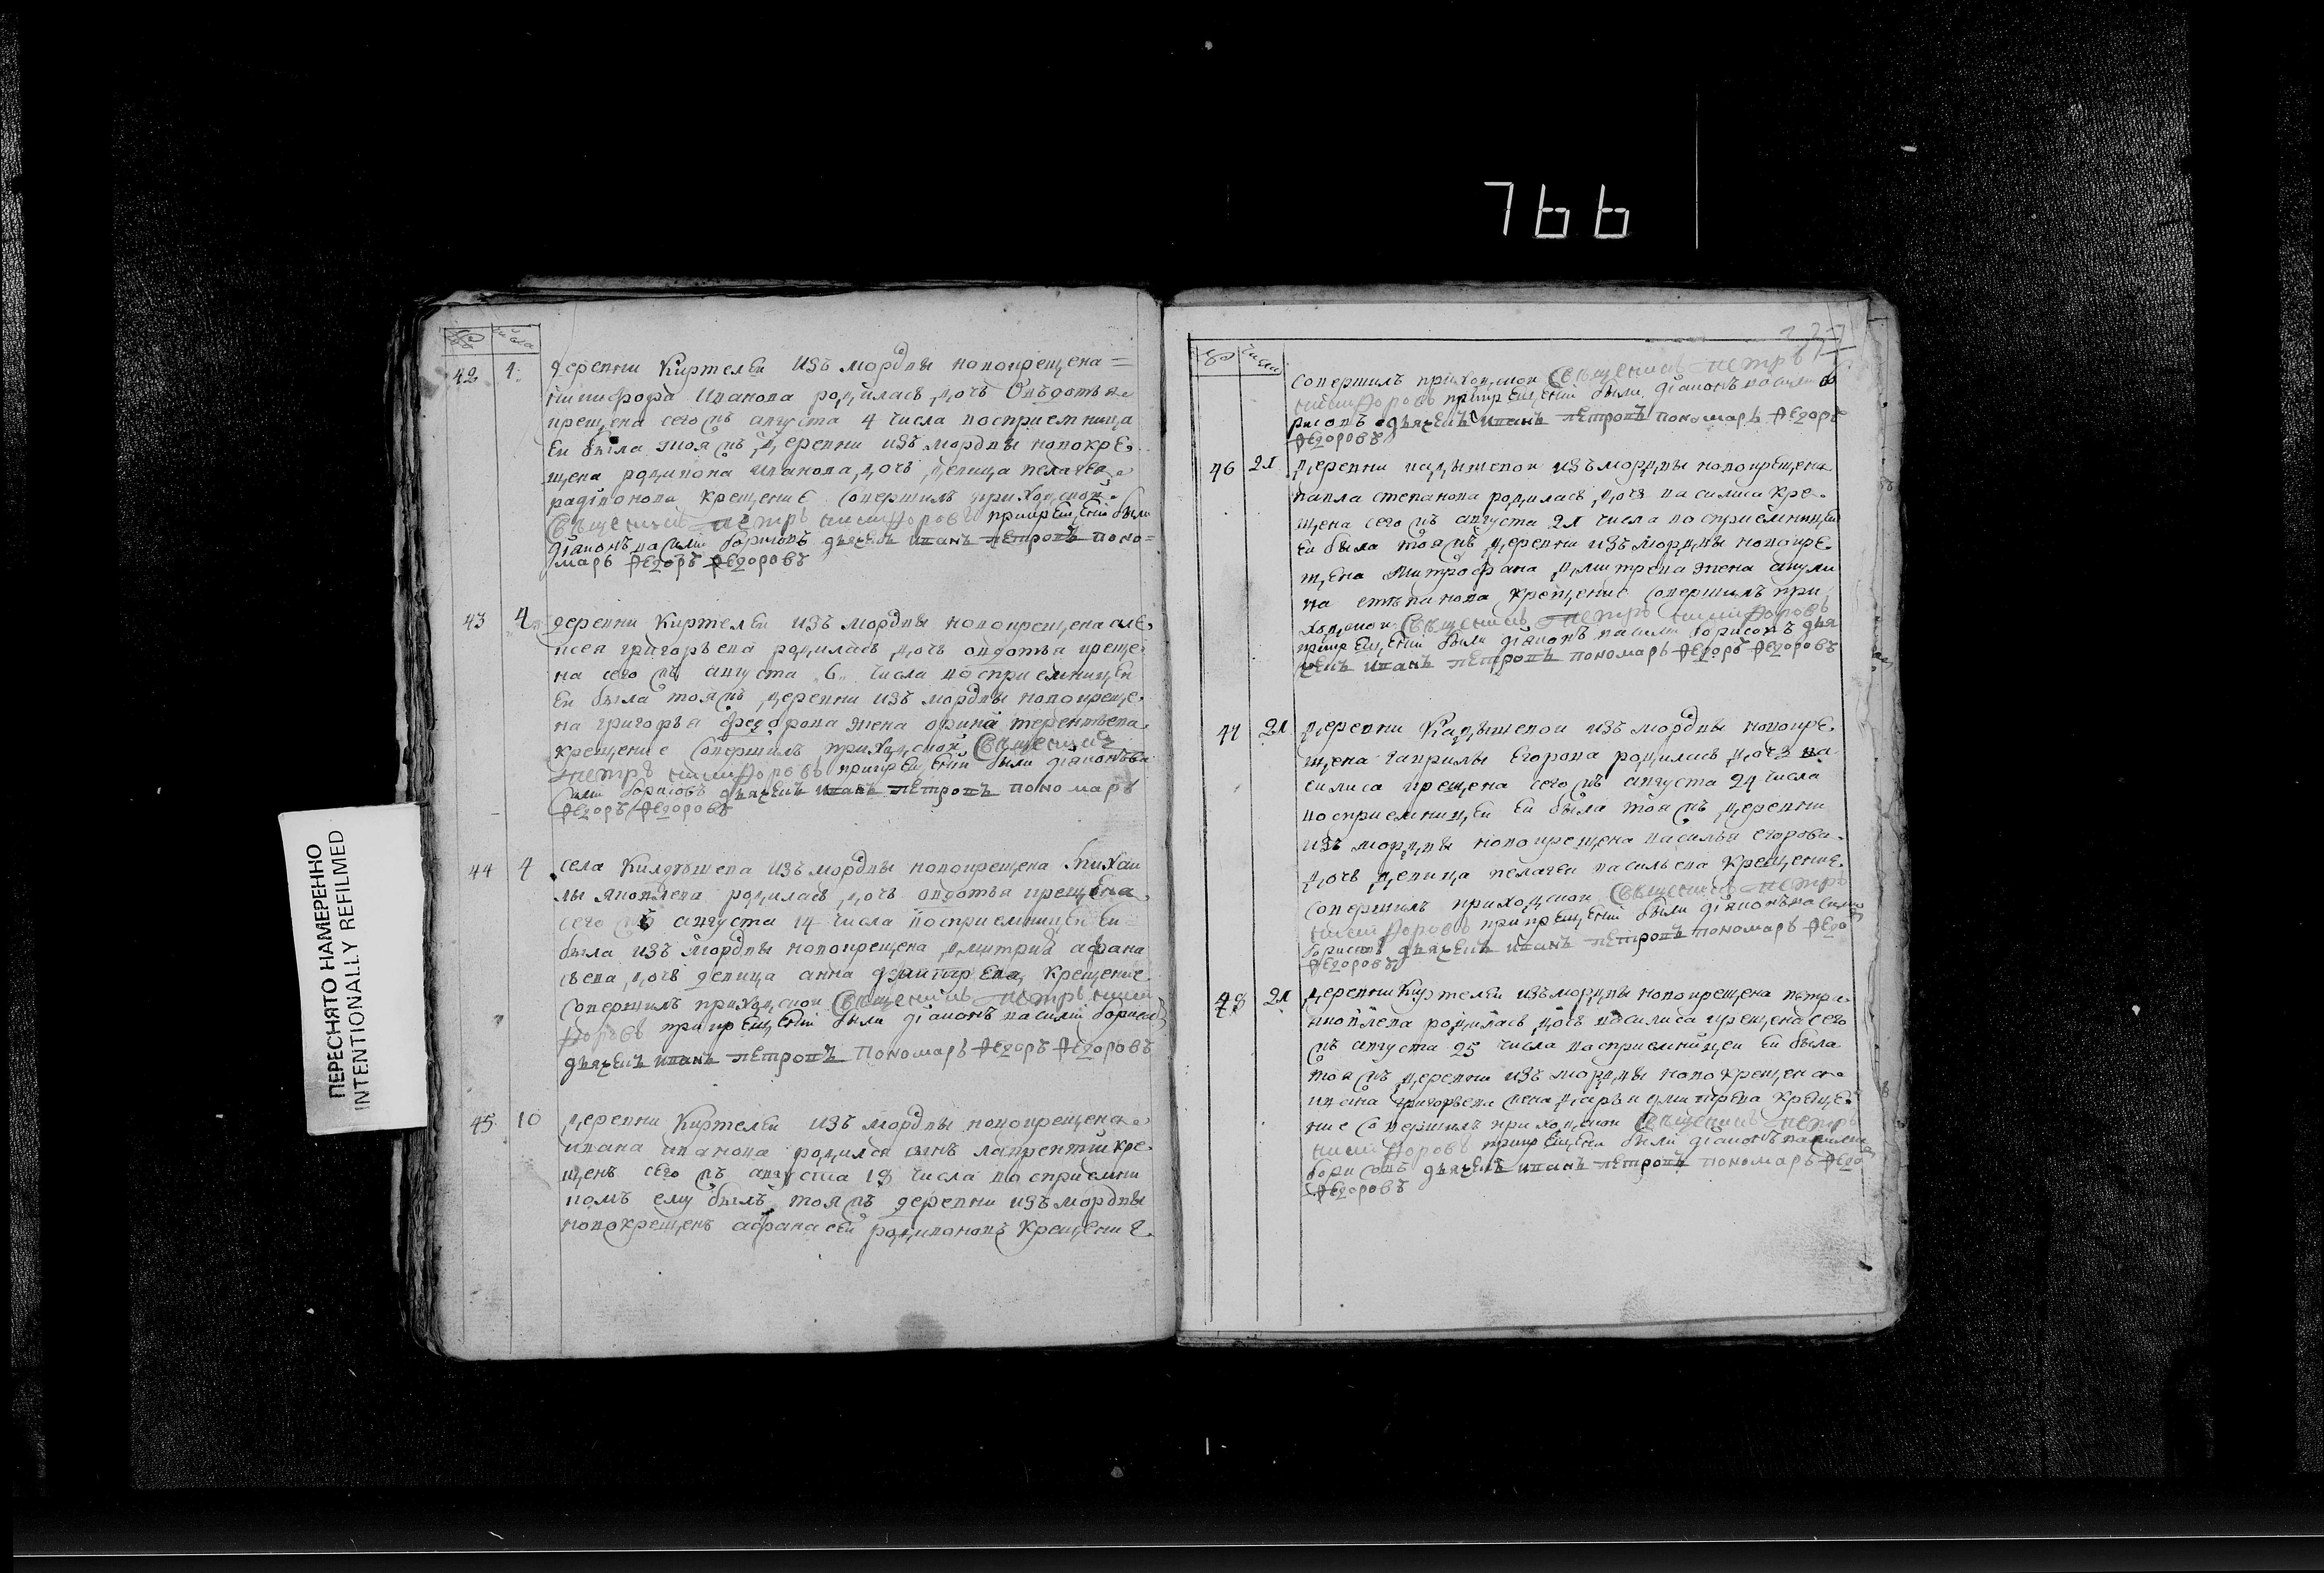 766
ПЕРЕСНЯТО НАМЕРЕННО
INTENTIONALLY REFILMED
числа
42 1 деревни Киртелеи изъ мордвы новокрещена
никифора Иванова родилась дочь Овъдотья
крещена сего мъ августа 4 числа восприемница
еи была тоя мъ деревни изъ мордвы новокре
щена родивона иванова дочь девица пелагея
радивонова крещение совершилъ приходскои
Священникъ петръ никифоровъ прикрещении были
диаконъ василии борисовъ дьячекъ иванъ петровъ поно
марь Федоръ Федоровъ
43 4 деревни Киртелеи изъ мордвы новокрещена але
ксея григорьева родилась дочь авдотья креще
на сего мъ августа 6 числа восприемницеи
еи была тояжъ деревни изъ мордвы новокреще
на григорья федорова жена орина терентьева
крещение совершилъ приходскои Священникъ
петръ никифоровъ прикрещении были диаконъ ва
силии борисовъ дьячекъ иванъ петровъ пономарь
Федоръ Федоровъ
44 4 села Килдюшева изъ мордвы новокрещена михаи
лы яковлева родилась дочь авдотья крещена
сего мъ августа 14 числа восприемницеи еи
была изъ мордвы новокрещена дмитрия афана
сьева дочь девица анна дмитрева крещение
совершилъ приходскои Священникъ петръ ники
форовъ прикрещении были диаконъ василии борисовъ
дьячекъ иванъ петровъ пономарь Федоръ Федоровъ
45 10 деревни Киртелеи изъ мордвы новокрещена
ивана иванова родился сынъ лаврентии кре
щенъ сего мъ августа 18 числа восприемни
комъ ему былъ тоя мъ деревни изъ мордвы
новокрещенъ афанасеи родивоновъ крещение
числа
совершилъ приходскои Священникъ петръ
никифоровъ прикрещении были диаконъ василии бо
рисовъ дьячекъ иванъ петровъ пономарь Федоръ
Федоровъ
46 21 деревни кадышевои изъ мордвы новокрещена
павла степанова родилась дочь василиса кре
щена сего мъ августа 21 числа восприемницеи
еи была тояжъ деревни изъ мордвы новокре
щена Митрофана дмитрева жена акули
на степанова крещение совершилъ при
ходскои Священникъ петръ никифоровъ
прикрещении были диаконъ василии борисовъ дья
чекъ иванъ петровъ пономарь Федоръ Федоровъ
47 21 деревни Кадышевои изъ мордвы новокре
щена гаврилы Егорова родилась дочь ва
силиса крещена сего мъ августа 24 числа
восприемницеи еи была тоя мъ деревни
изъ мордвы новокрещена василья егорова
дочь девица пелагея васильева Крещение
совершилъ приходскои Священникъ петръ
никифоровъ прикрещении были диаконъ василии
борисовъ дьячекъ иванъ петровъ пономарь Федо
Федоровъ
48 21 деревни Киртелеи изъ мордвы новокрещена петра
яковлева родилась дочь василиса крещена сего
мъ августа 25 числа восприемницеи еи была
тоя мъ деревни изъ мордвы новокрещена
ивана григорьева жена дарья дмитрева креще
ние совершилъ приходскои Священникъ петръ
никифоровъ прикрещении были диаконъ василии
борисовъ дьячекъ иванъ петровъ пономарь Федо
Федоровъ